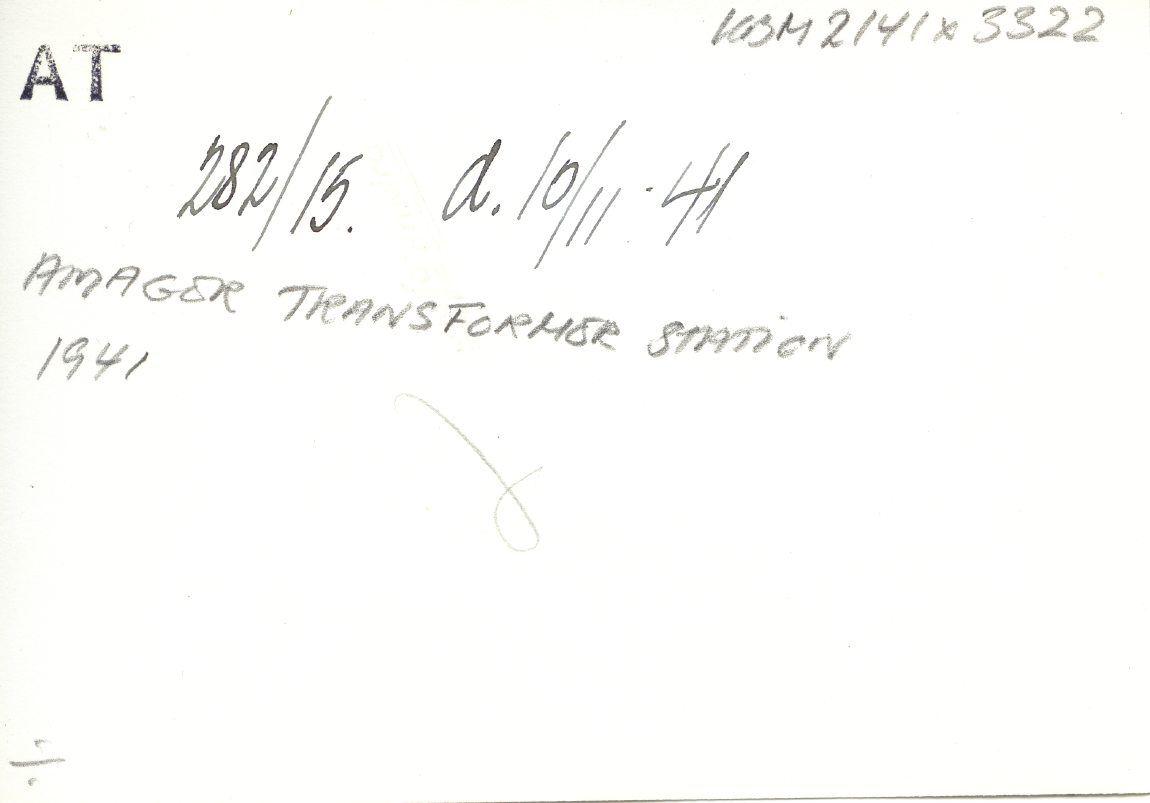 KBM2141x3322
AT
282/15. d. 10/11-41
AMAGER TRANSFORMER STATION
1941
÷